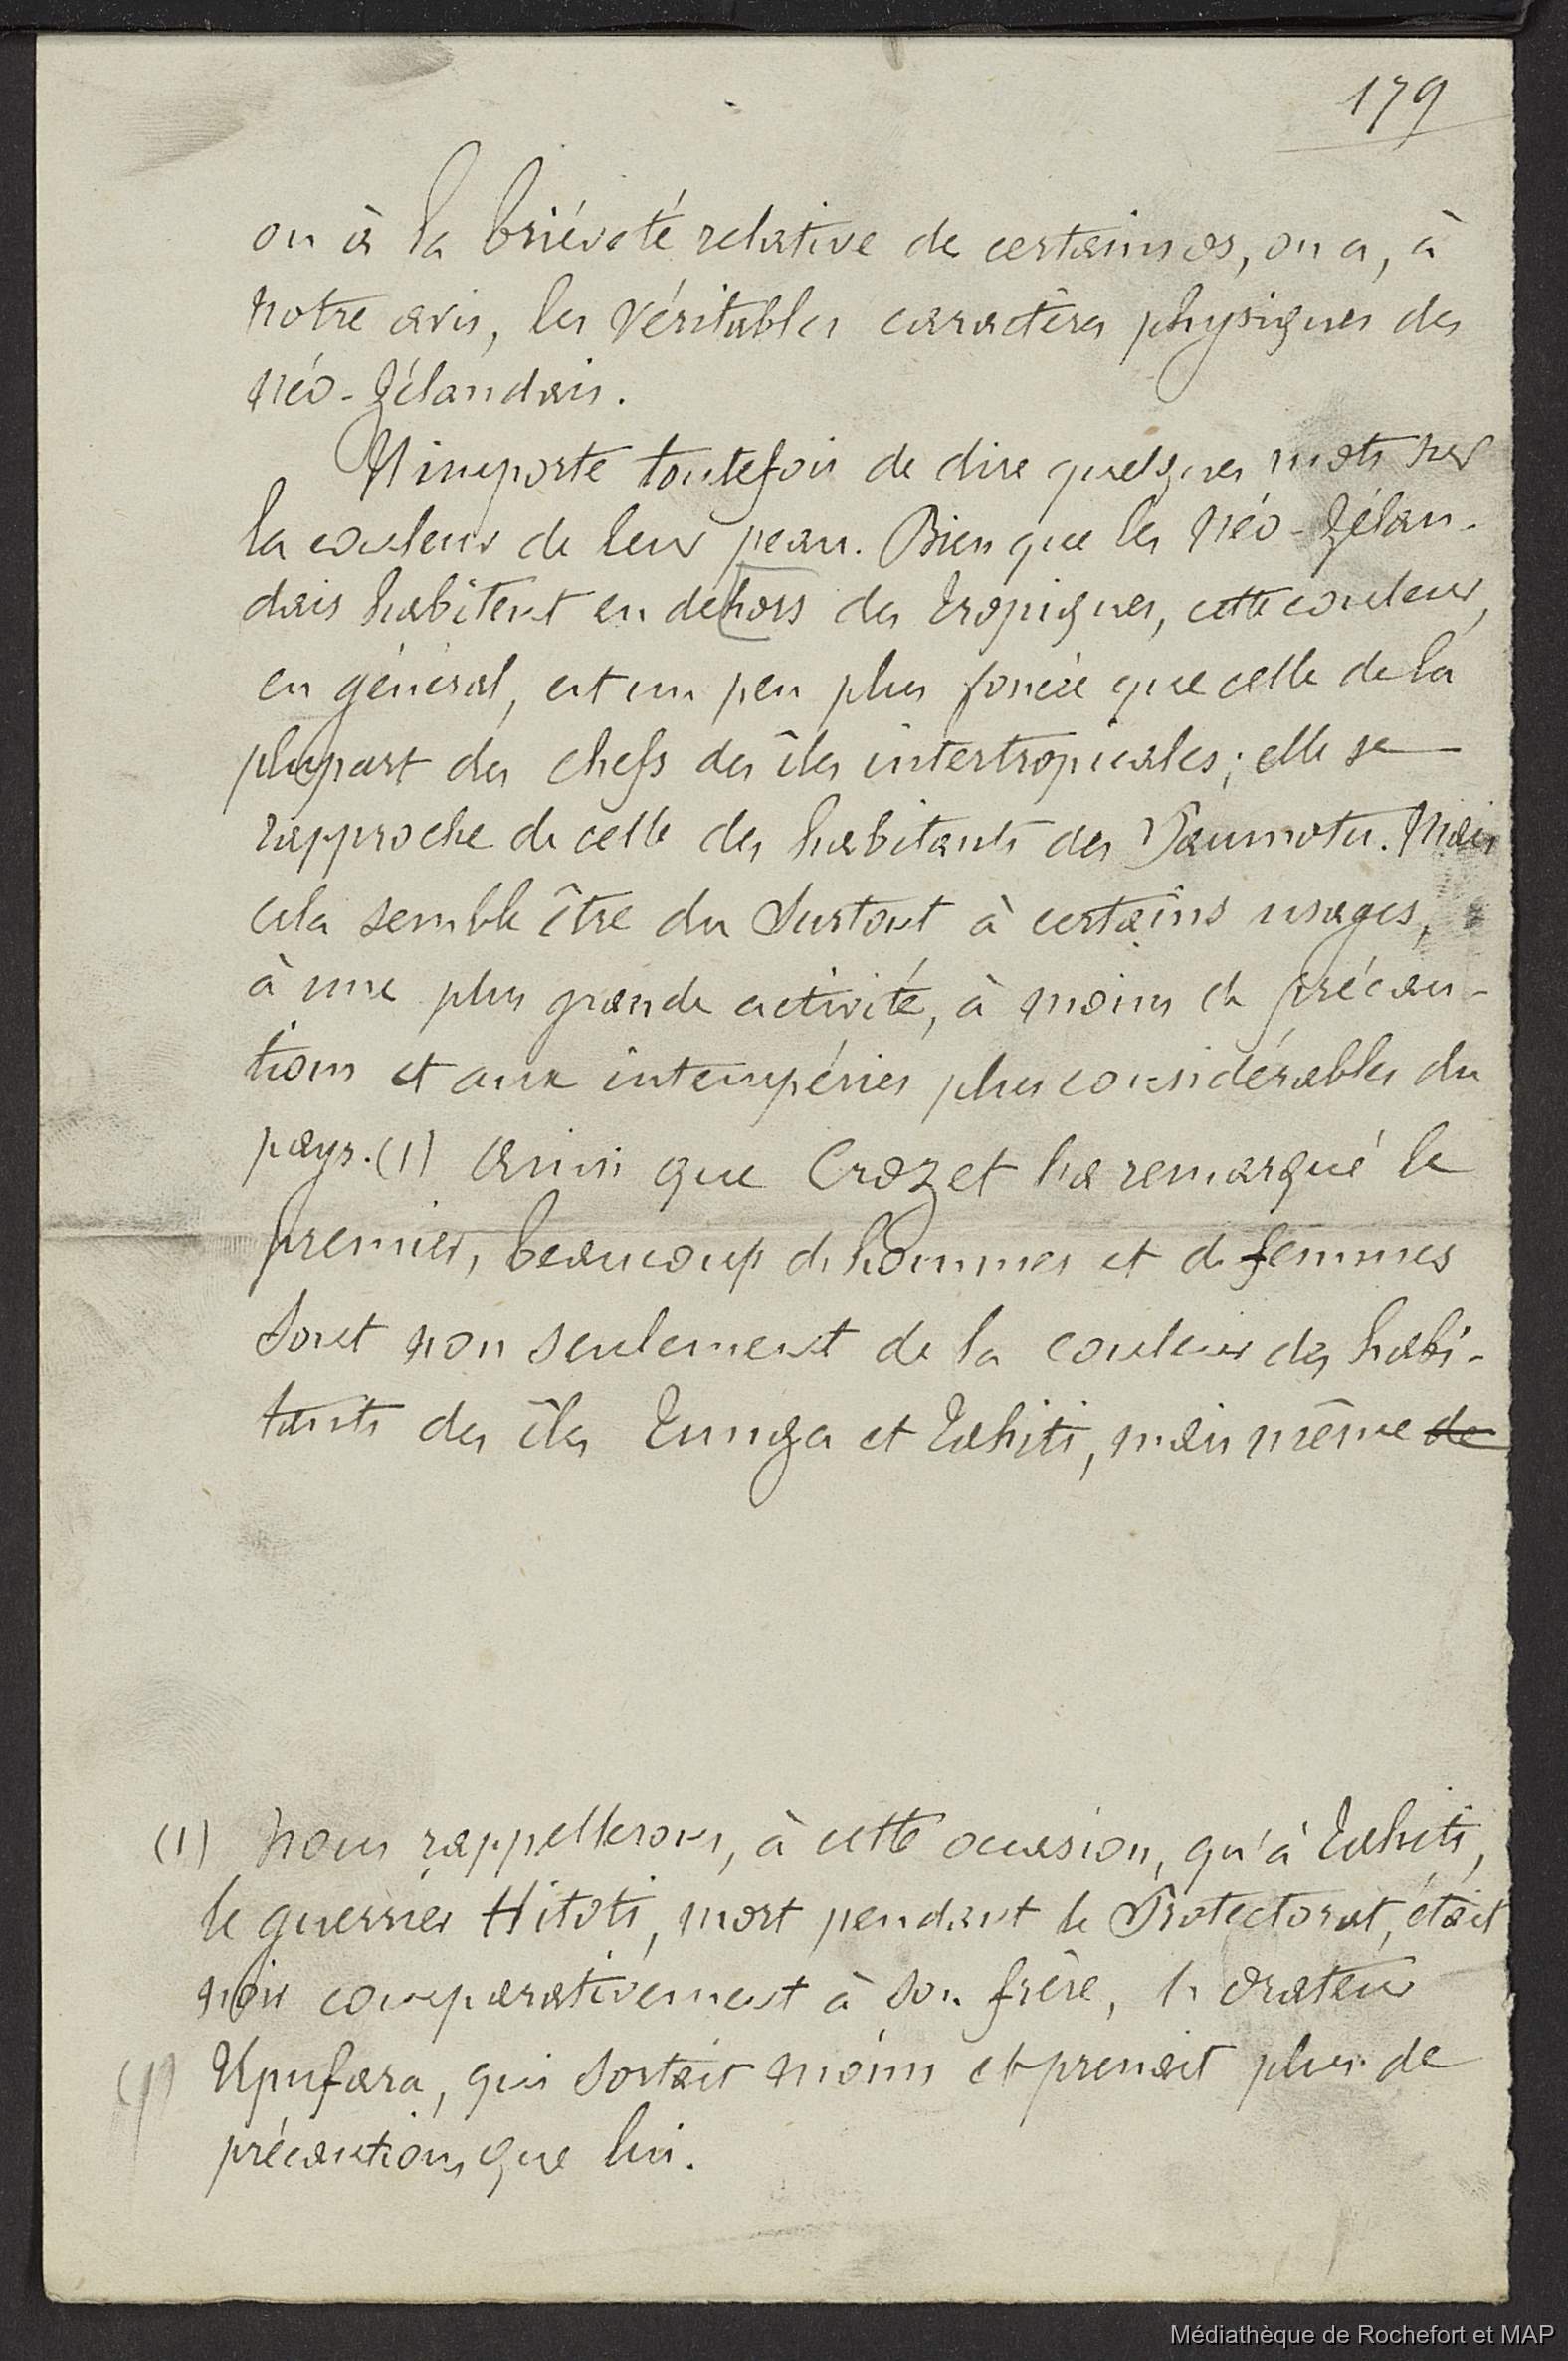 179
ou à la briéveté relative de certaines, on a, à
notre avis, les véritables caractères physiques des
Néo-Zélandais.
Il importe toutefois de dire quelques mots sur
la couleur de leur peau. Bien que les Néo-Zélan-
dais habitent en dehors des tropiques, cette couleur,
en général, est un peu plus foncée que celle de la
plupart des chefs des îles intertropicales; elle se
rapproche de celle des habitants des Paumotu. Mais
cela semble être du surtout à certains usages,
à une plus grande activité, à moins de précau-
tions et aux intempéries plus considérables du
pays. (1) Ainsi que Crozet l'a remarqué le
premier, beaucoup d'hommes et de femmes
sont non seulement de la couleur des habi-
tants des îles Tunga et Tahiti, mais même de
(1) Nous rappellerons, à cette occasion, qu'à Tahiti,
le guerrier Hitoti, mort pendant le Protectorat, était
noir comparativement à son frère, l'orateur
(1) Upufara, qui sortait moins et prenait plus de
précautions que lui.
Médiathèque de Rochefort et MAP